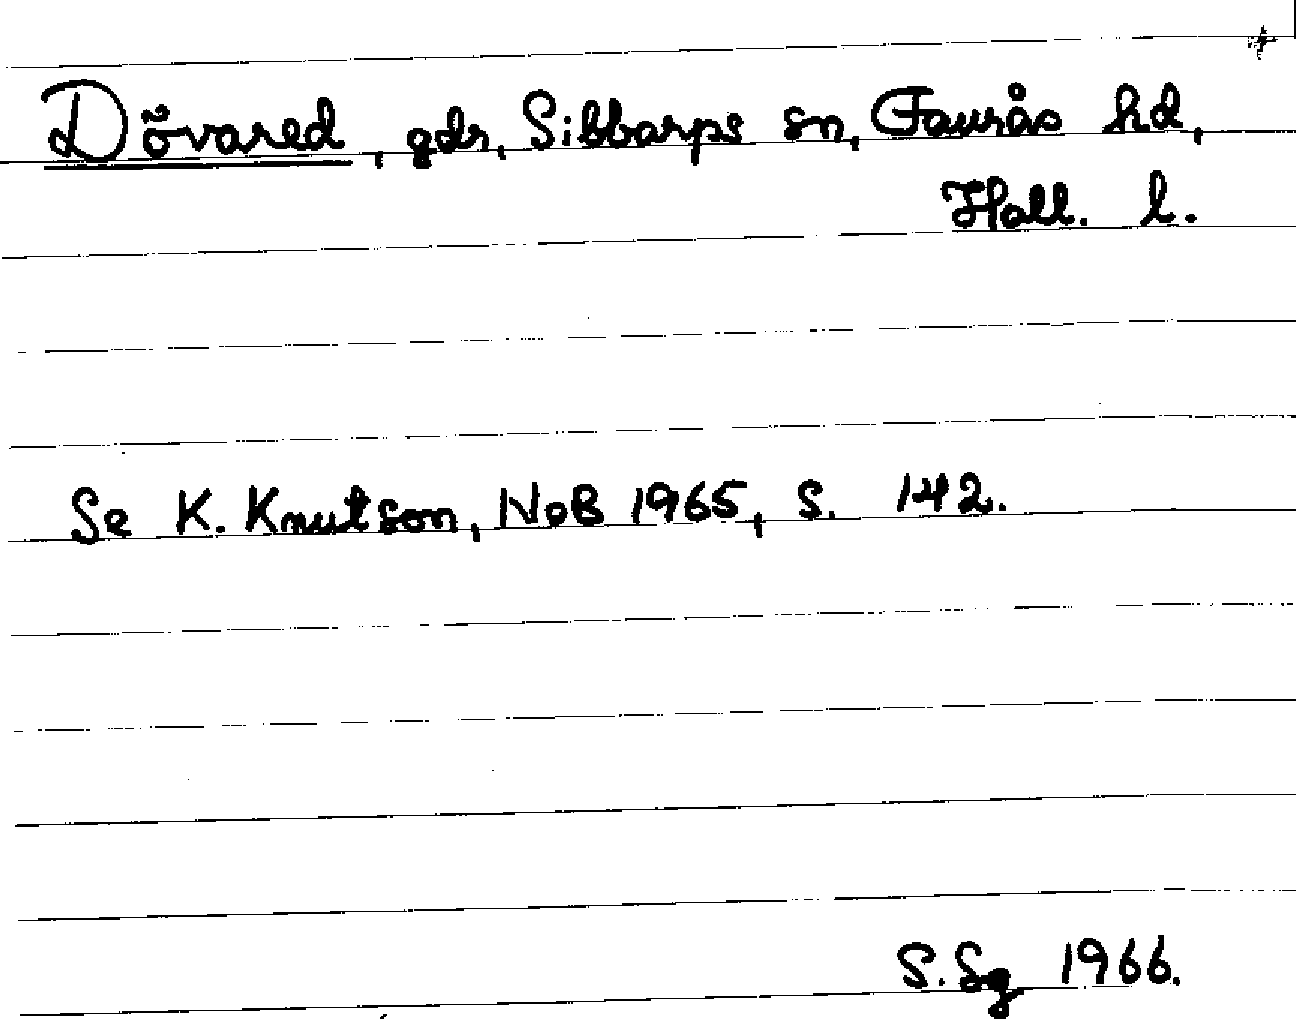 Dövared, gdr, Sibbarps sn, Faurås hd,
Hall. l.
Se K. Knutson, NoB 1965, s. 142.
S.Sg 1966.